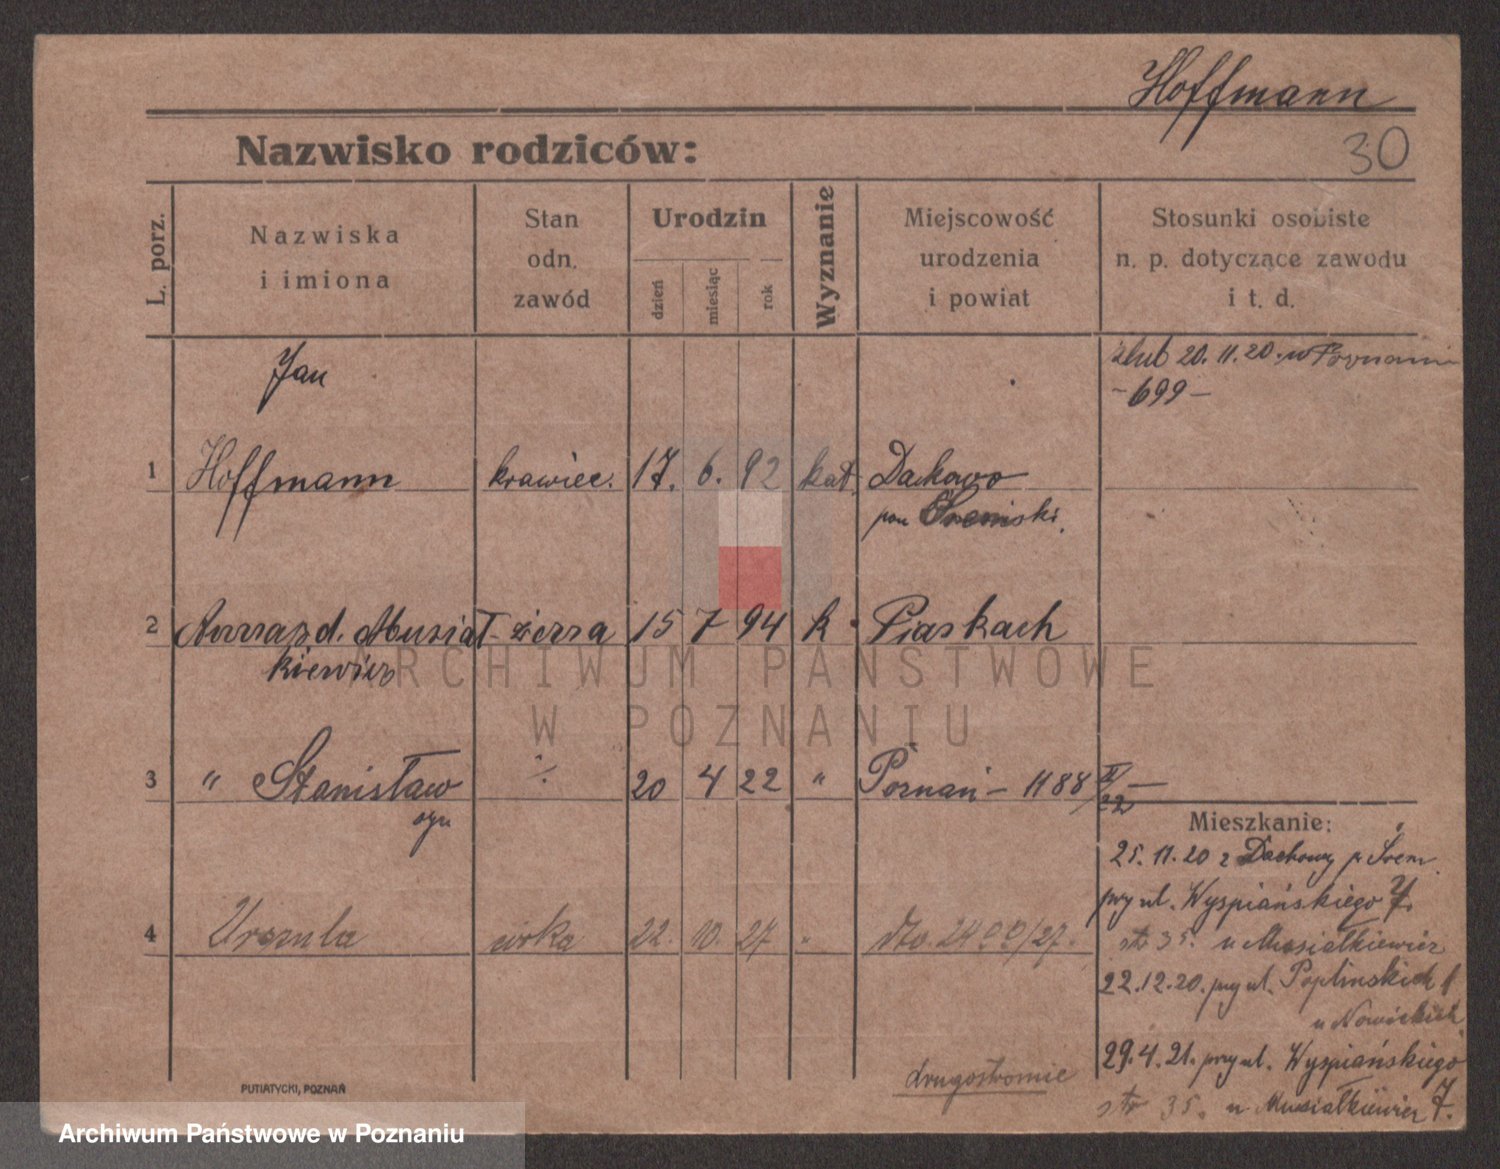 Hoffmann
30
Nazwisko rodziców:
L. porz.
Nazwiska
i imiona
Stan
odn.
zawód
Urodzin
dzień
miesiąc
rok
Wyznanie
Miejscowość
urodzenia
i powiat
Stosunki osobiste
n. p. dotyczące zawodu
i t. d.
ślub 20. 11. 20. w Poznaniu
- 699 -
Jan
1 Hoffmann krawiec. 17. 6. 92 kat. Dachowo
pow Śremski.
2 d. Musiał- żona 15 7 94 k. Piaskach
kiewicz
3 " Stanisław ·/· 20 4 22 " Poznań - 1188 IV/22 -
syn
4 Urszula córka 22. 10. 27 " dto. 2400/27.
Mieszkanie:
25. 11. 20 z Dachowy p. Śrem
przy ul. Wyspiańskiego 7.
str 35. u Musiałkiewicz
22. 12. 20. przy ul. Poplinskich 1
u Nowickich
29. 4. 21. przy ul. Wyspiańskiego
str 35. u Musiałkiewicz 7.
drugostronnie
PUTIATYCKI, POZNAŃ
ARCHIWUM PAŃSTWOWE
W POZNANIU
Archiwum Państwowe w Poznaniu